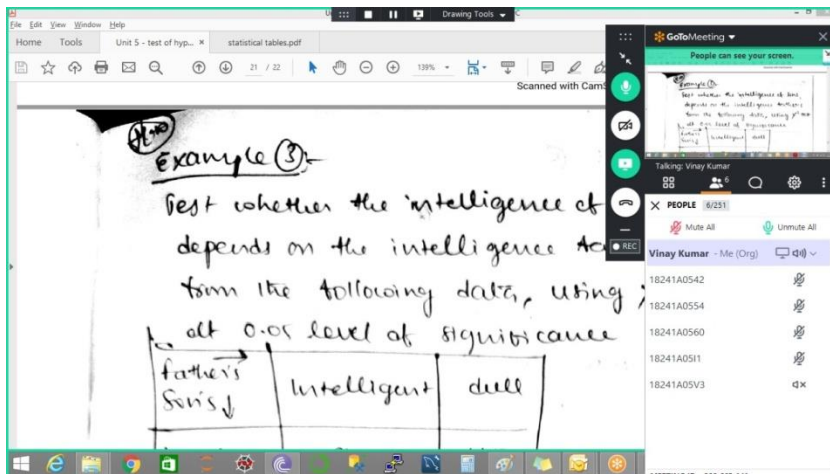 Drawing Tools
File Edit View Window Help
Home Tools Unit 5 - test of hyp... × statistical tables.pdf
21 / 22 139%
Scanned with CamS
Example ③:-
Test whether the intelligence of
depends on the intelligence
from the following data, using
at 0.05 level of significance
father's
Son's ↓
Intelligent dull
GoToMeeting
People can see your screen.
Talking: Vinay Kumar
6
× PEOPLE 6/251
Mute All Unmute All
REC
Vinay Kumar - Me (Org)
18241A0542
18241A0554
18241A0560
18241A05I1
18241A05V3